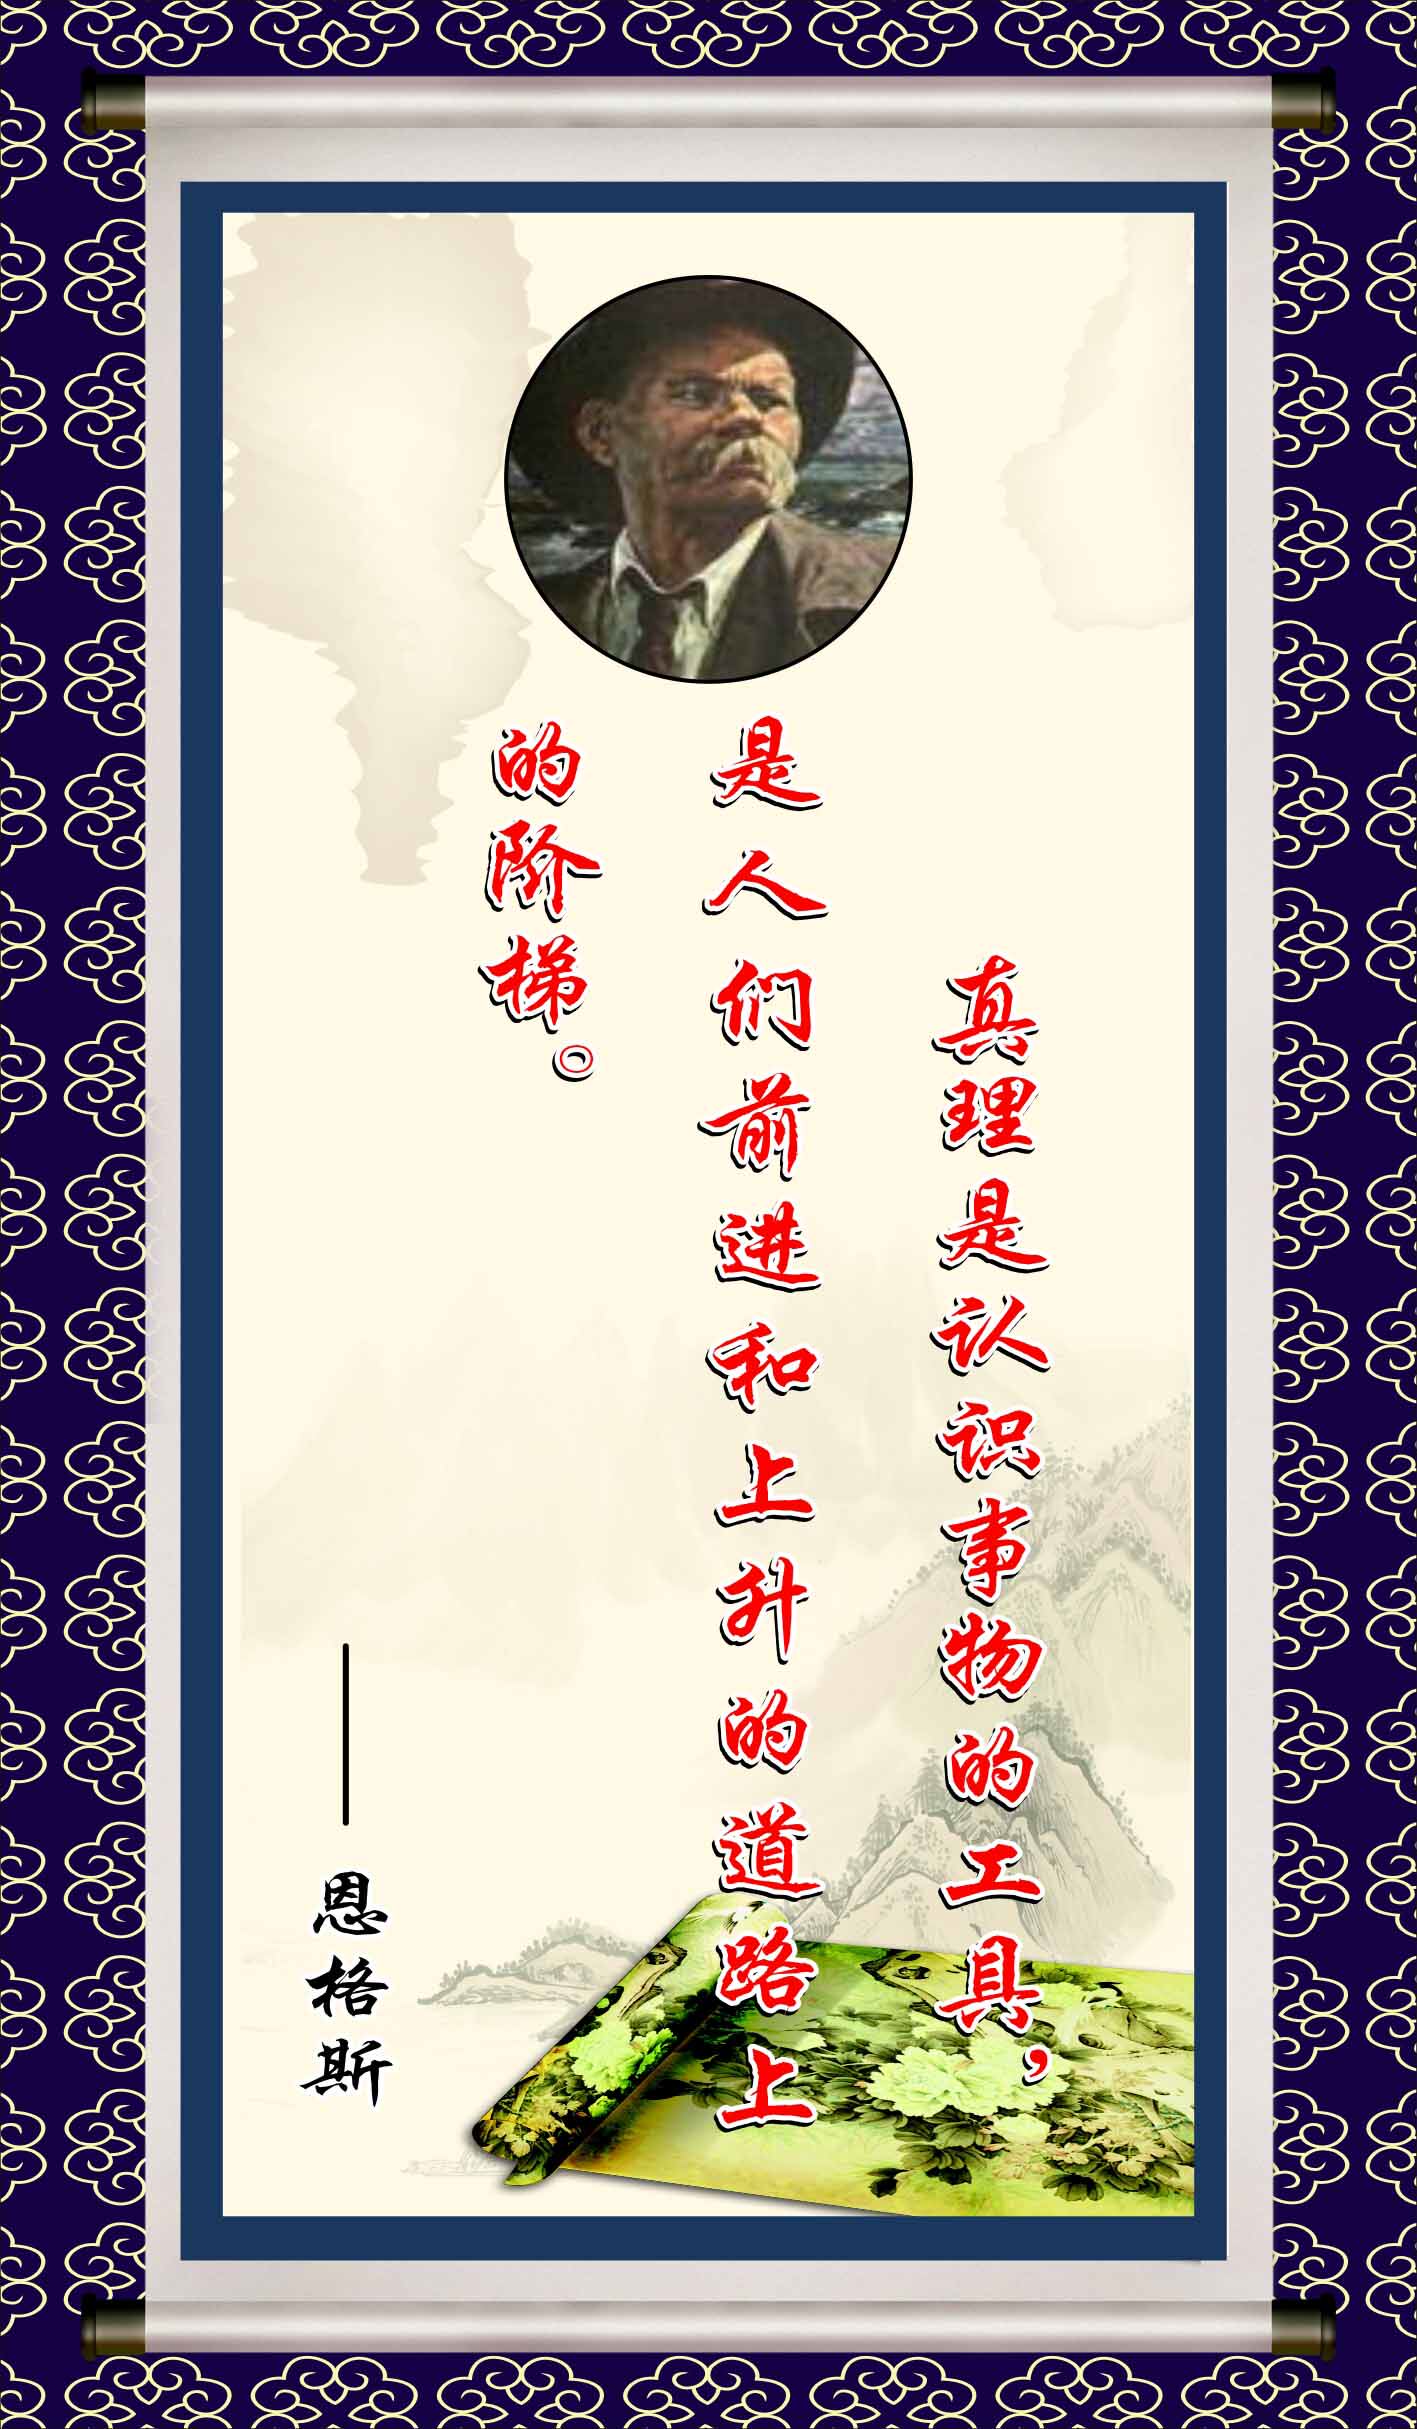 真理是认识事物的工具，
是人们前进和上升的道路上
的阶梯。
——恩格斯